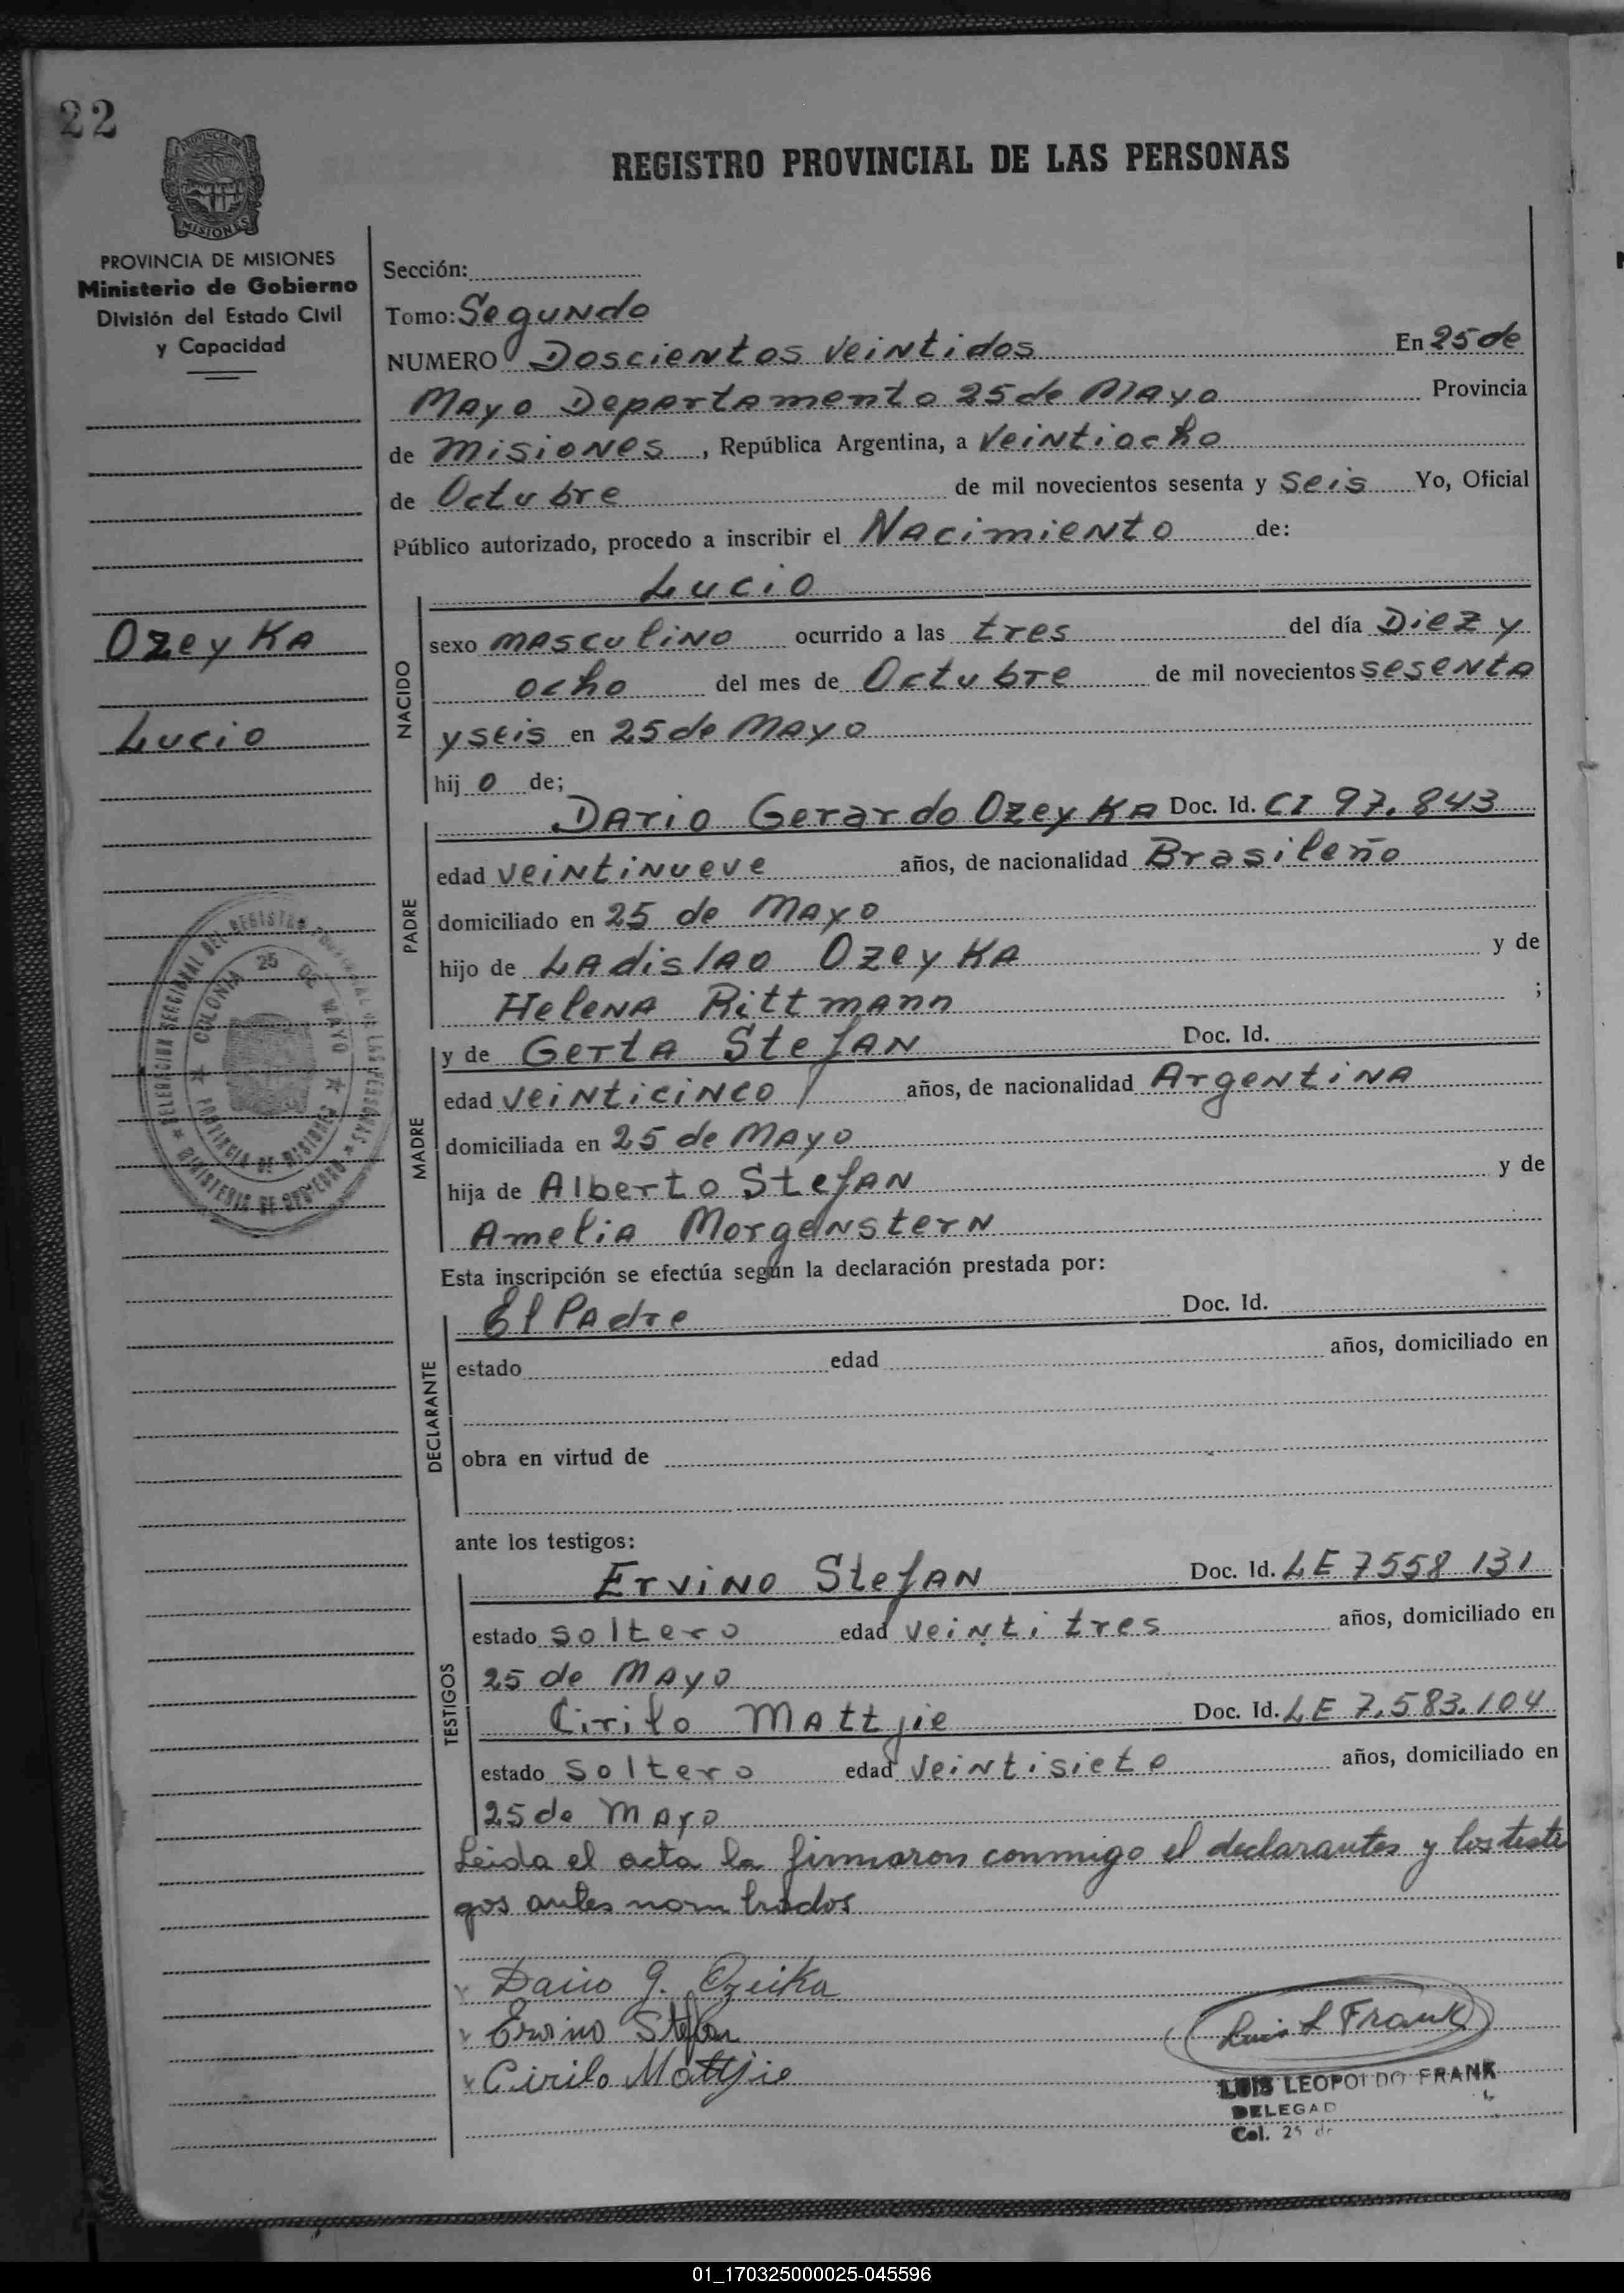 22
REGISTRO PROVINCIAL DE LAS PERSONAS
PROVINCIA DE
MISIONES
PROVINCIA DE MISIONES
Ministerio de Gobierno
División del Estado Civil
y Capacidad
Ozeyka
Lucio
DELEGACION SECCIONAL DEL REGISTRO PROVINCIAL DE LAS PERSONAS
MINISTERIO DE GOBIERNO
COLONIA 25 DE MAYO
PROVINCIA DE MISIONES
Sección:
Tomo: Segundo
NUMERO Doscientos veintidos En 25 de
Mayo Departamento 25 de Mayo Provincia
de Misiones, República Argentina, a veintiocho
de Octubre de mil novecientos sesenta y seis Yo, Oficial
Público autorizado, procedo a inscribir el Nacimiento de:
Lucio
NACIDO
sexo masculino ocurrido a las tres del día Diez y
ocho del mes de Octubre de mil novecientos sesenta
y seis en 25 de Mayo
hij o de;
PADRE
Dario Gerardo Ozeyka Doc. Id. CI 97.843
edad veintinueve años, de nacionalidad Brasileño
domiciliado en 25 de Mayo
hijo de Ladislao Ozeyka y de
Helena Rittmann ;
MADRE
y de Gerta Stefan Doc. Id.
edad veinticinco años, de nacionalidad Argentina
domiciliada en 25 de Mayo
hija de Alberto Stefan y de
Amelia Morgenstern
Esta inscripción se efectúa según la declaración prestada por:
DECLARANTE
El Padre Doc. Id.
estado edad años, domiciliado en
obra en virtud de
ante los testigos:
TESTIGOS
Ervino Stefan Doc. Id. LE 7558 131
estado soltero edad veintitres años, domiciliado en
25 de Mayo
Cirilo Mattjie Doc. Id. LE 7.583.104
estado soltero edad veintisiete años, domiciliado en
25 de Mayo
Leida el acta la firmaron conmigo el declarantes y los testi
gos antes nombrados
Dario G. Ozeika
Ervino Stefan
Cirilo Mattjie
Luis L Frank
LUIS LEOPOLDO FRANK
DELEGAD
Col. 25 de
01_170325000025-045596